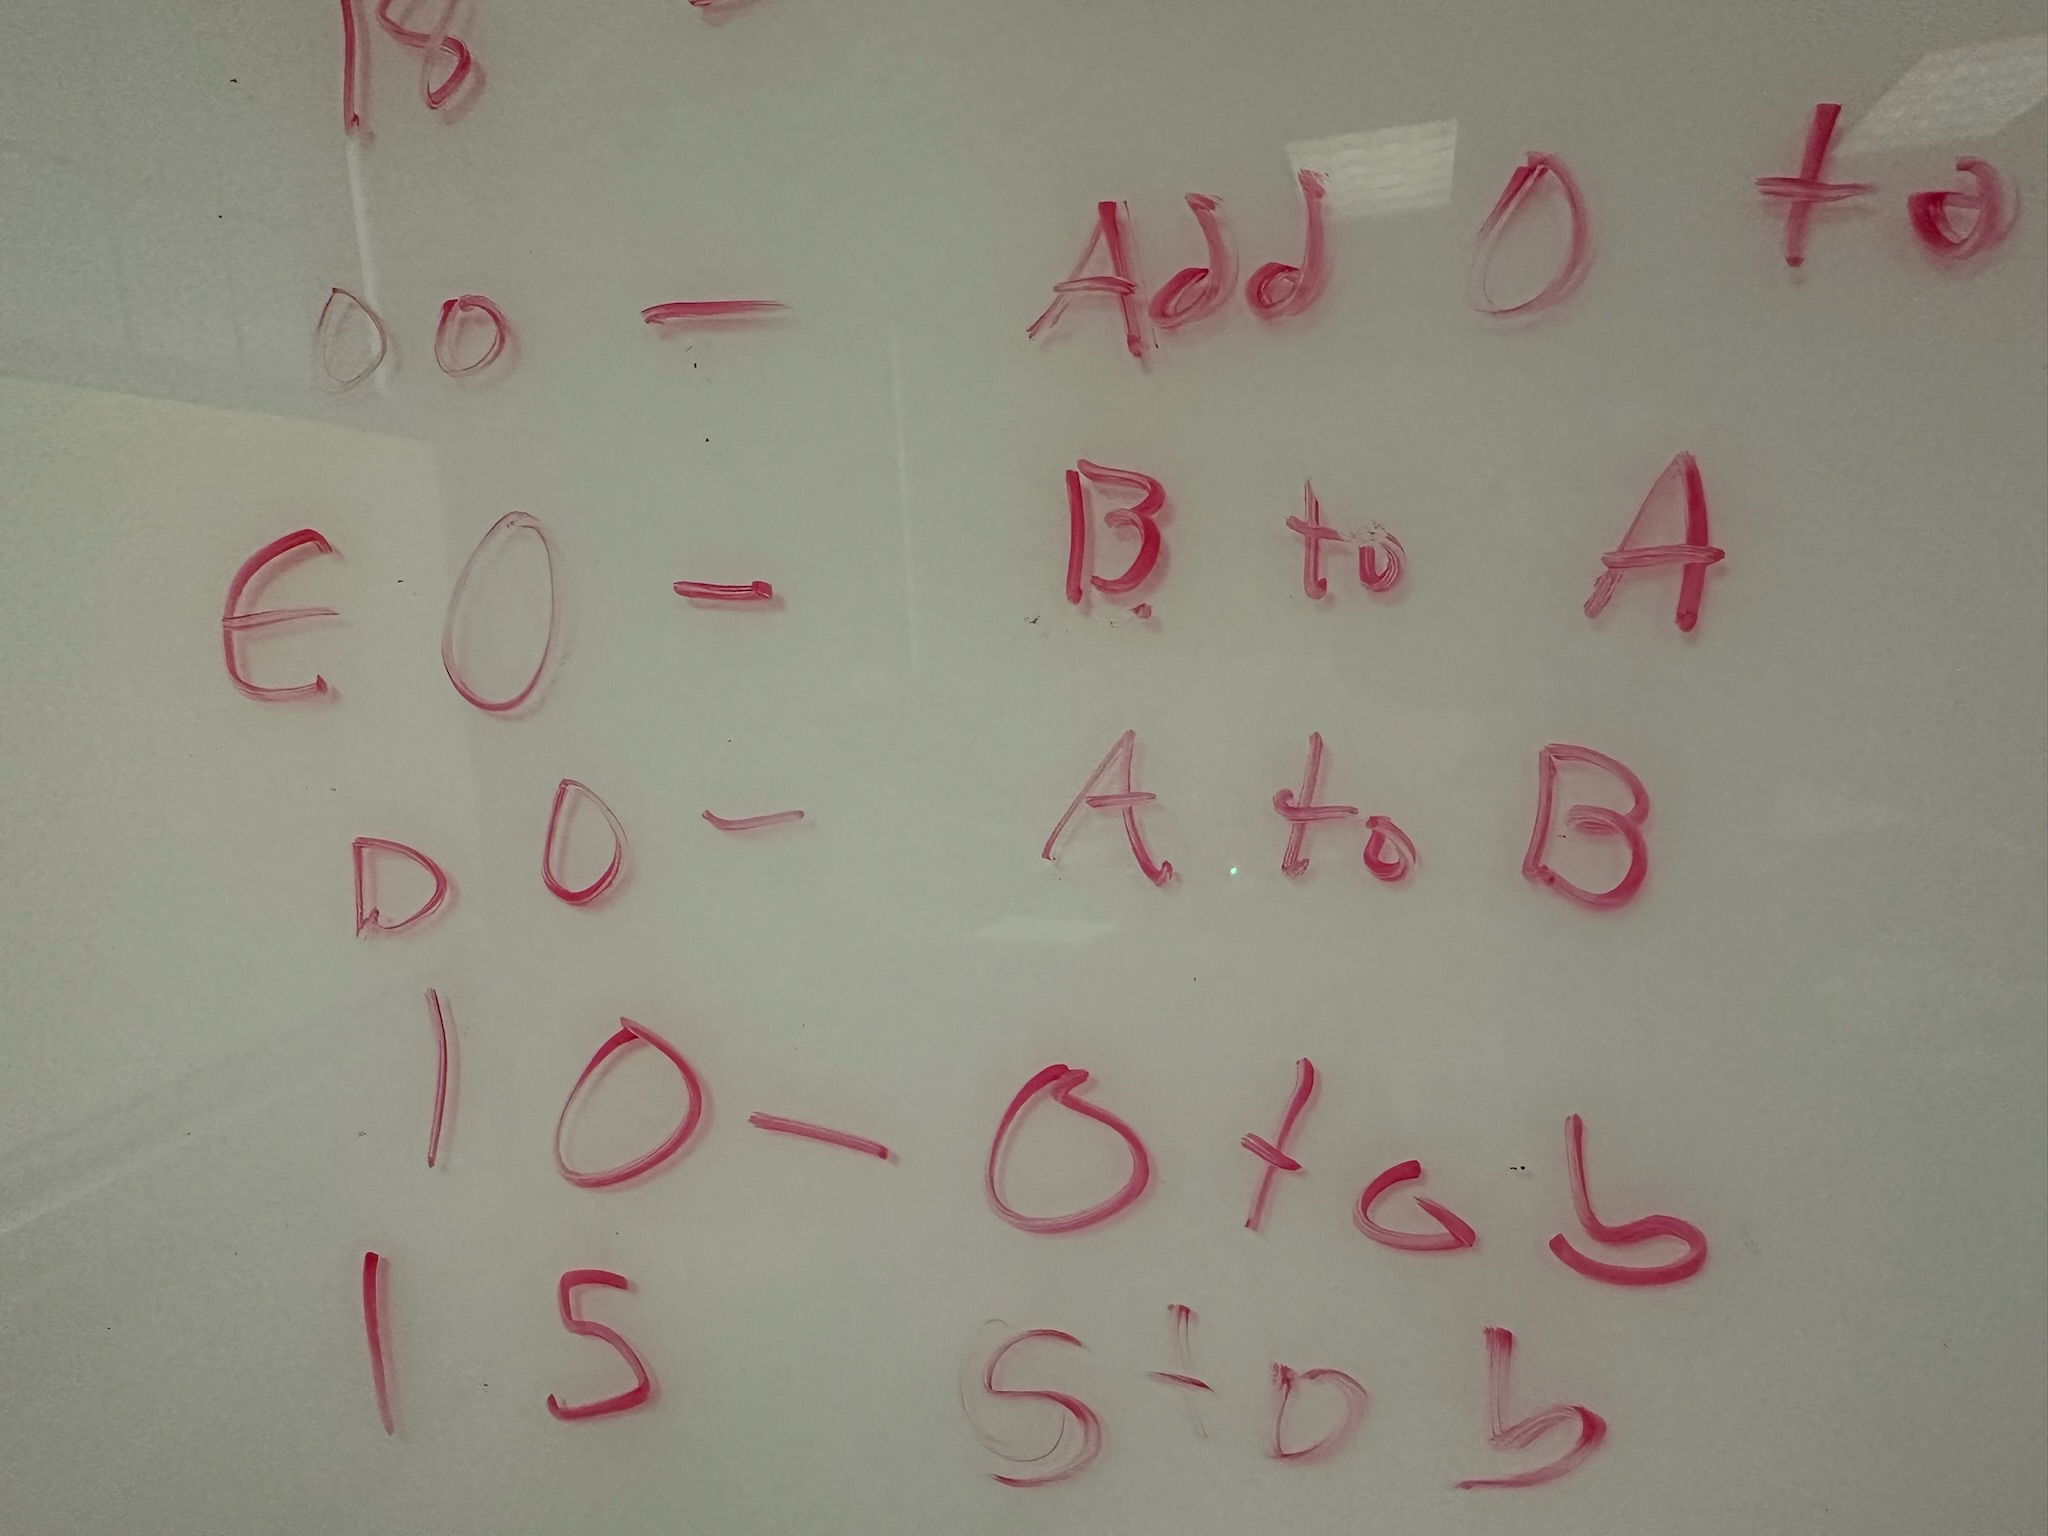 18
00 - Add 0 to
E0 - B to A
D0 - A to B
10 - 0 to b
15 5 to b